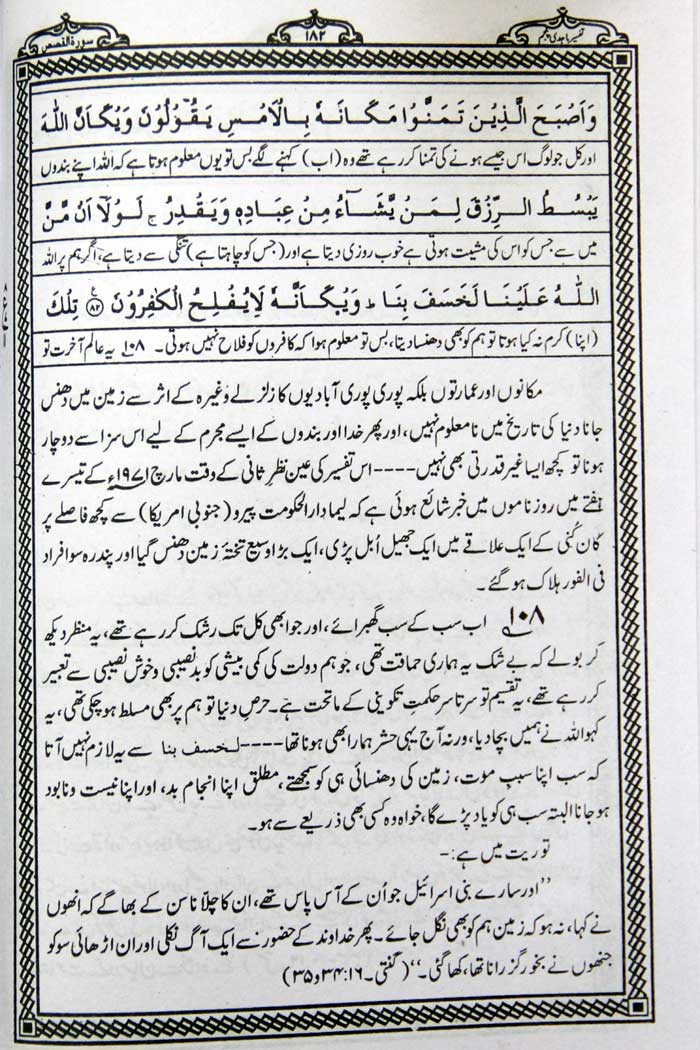 تفسیر ماجدی پنجم ۱۸۲ سورۃ القصص
وَاَصْبَحَ الَّذِیْنَ تَمَنَّوْا مَکَانَهٗ بِالْاَمْسِ یَقُوْلُوْنَ وَیْکَاَنَّ اللّٰهَ
اور کل جو لوگ اس جیسے ہونے کی تمنا کر رہے تھے وہ (اب) کہنے لگے بس تو یوں معلوم ہوتا ہے کہ اللہ اپنے بندوں
یَبْسُطُ الرِّزْقَ لِمَنْ یَّشَآءُ مِنْ عِبَادِهٖ وَیَقْدِرُ ۚ لَوْلَاۤ اَنْ مَّنَّ
میں سے جس کو اس کی مشیت ہوتی ہے خوب روزی دیتا ہے اور (جس کو چاہتا ہے) تنگی سے دیتا ہے، اگر ہم پر اللہ
اللّٰهُ عَلَیْنَا لَخَسَفَ بِنَا ؕ وَیْکَاَنَّهٗ لَا یُفْلِحُ الْکٰفِرُوْنَ ﴿۸۲﴾ تِلْکَ
(اپنا) کرم نہ کیا ہوتا تو ہم کو بھی دھنسا دیتا، بس تو معلوم ہوا کہ کافروں کو فلاح نہیں ہوتی۔ ۱۰۸ یہ عالم آخرت تو
مکانوں اور عمارتوں بلکہ پوری پوری آبادیوں کا زلزلے وغیرہ کے اثر سے زمین میں دھنس
جانا دنیا کی تاریخ میں نامعلوم نہیں، اور پھر خدا اور بندوں کے ایسے مجرم کے لیے اس سزا سے دوچار
ہونا تو کچھ ایسا غیر قدرتی بھی نہیں----اس تفسیر کی عین نظرِ ثانی کے وقت مارچ ۱۹۷۱ء کے تیسرے
ہفتے میں روزناموں میں خبر شائع ہوئی ہے کہ لیما دارالحکومت پیرو (جنوبی امریکا) سے کچھ فاصلے پر
کان کُنی کے ایک علاقے میں ایک جھیل اُبل پڑی، ایک بڑا وسیع تختۂ زمین دھنس گیا اور پندرہ سو افراد
فی الفور ہلاک ہو گئے۔
۱۰۸ اب سب کے سب گھبرائے، اور جو ابھی کل تک رشک کر رہے تھے، یہ منظر دیکھ
کر بولے کہ بے شک یہ ہماری حماقت تھی، جو ہم دولت کی کمی بیشی کو بدنصیبی و خوش نصیبی سے تعبیر
کر رہے تھے، یہ تقسیم تو سرتاسر حکمتِ تکوینی کے ماتحت ہے۔ حرصِ دنیا تو ہم پر بھی مسلط ہو چکی تھی، یہ
کہو اللہ نے ہمیں بچا دیا، ورنہ آج یہی حشر ہمارا بھی ہونا تھا----لخسف بنا سے یہ لازم نہیں آتا
کہ سب اپنا سببِ موت، زمین کی دھنسائی ہی کو سمجھتے، مطلق اپنا انجام بد، اور اپنا نیست ونابود
ہو جانا البتہ سب ہی کو یاد پڑے گا، خواہ وہ کسی بھی ذریعے سے ہو۔
توریت میں ہے:-
”اور سارے بنی اسرائیل جو اُن کے آس پاس تھے، ان کا چلّانا سن کے بھاگے کہ انھوں
نے کہا، نہ ہو کہ زمین ہم کو بھی نگل جائے۔ پھر خداوند کے حضور سے ایک آگ نکلی اور ان اڑھائی سو کو
جنھوں نے بخور گزرانا تھا، کھا گئی۔“ (گنتی۔۱۶:۳۴و۳۵)